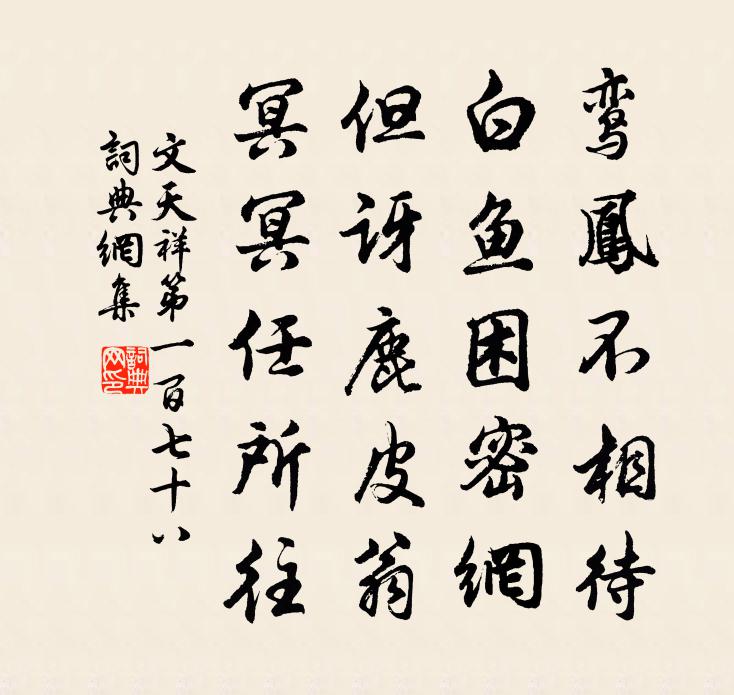 鸾鳳不相待
白鱼困密網
但訝鹿皮翁
冥冥任所往
文天祥第一百七十八
詞典網集
詞典网印